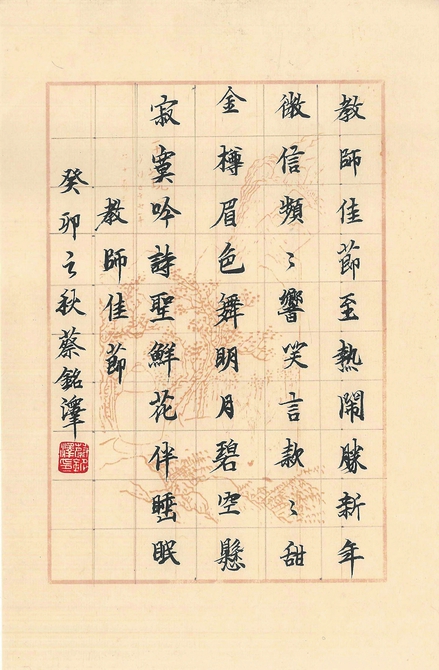 教師佳節至熱鬧勝新年
微信頻〻響笑言款〻甜
金樽眉色舞明月碧空懸
寂寞吟詩聖鮮花伴睡眠
教師佳節
癸卯之秋蔡銘澤